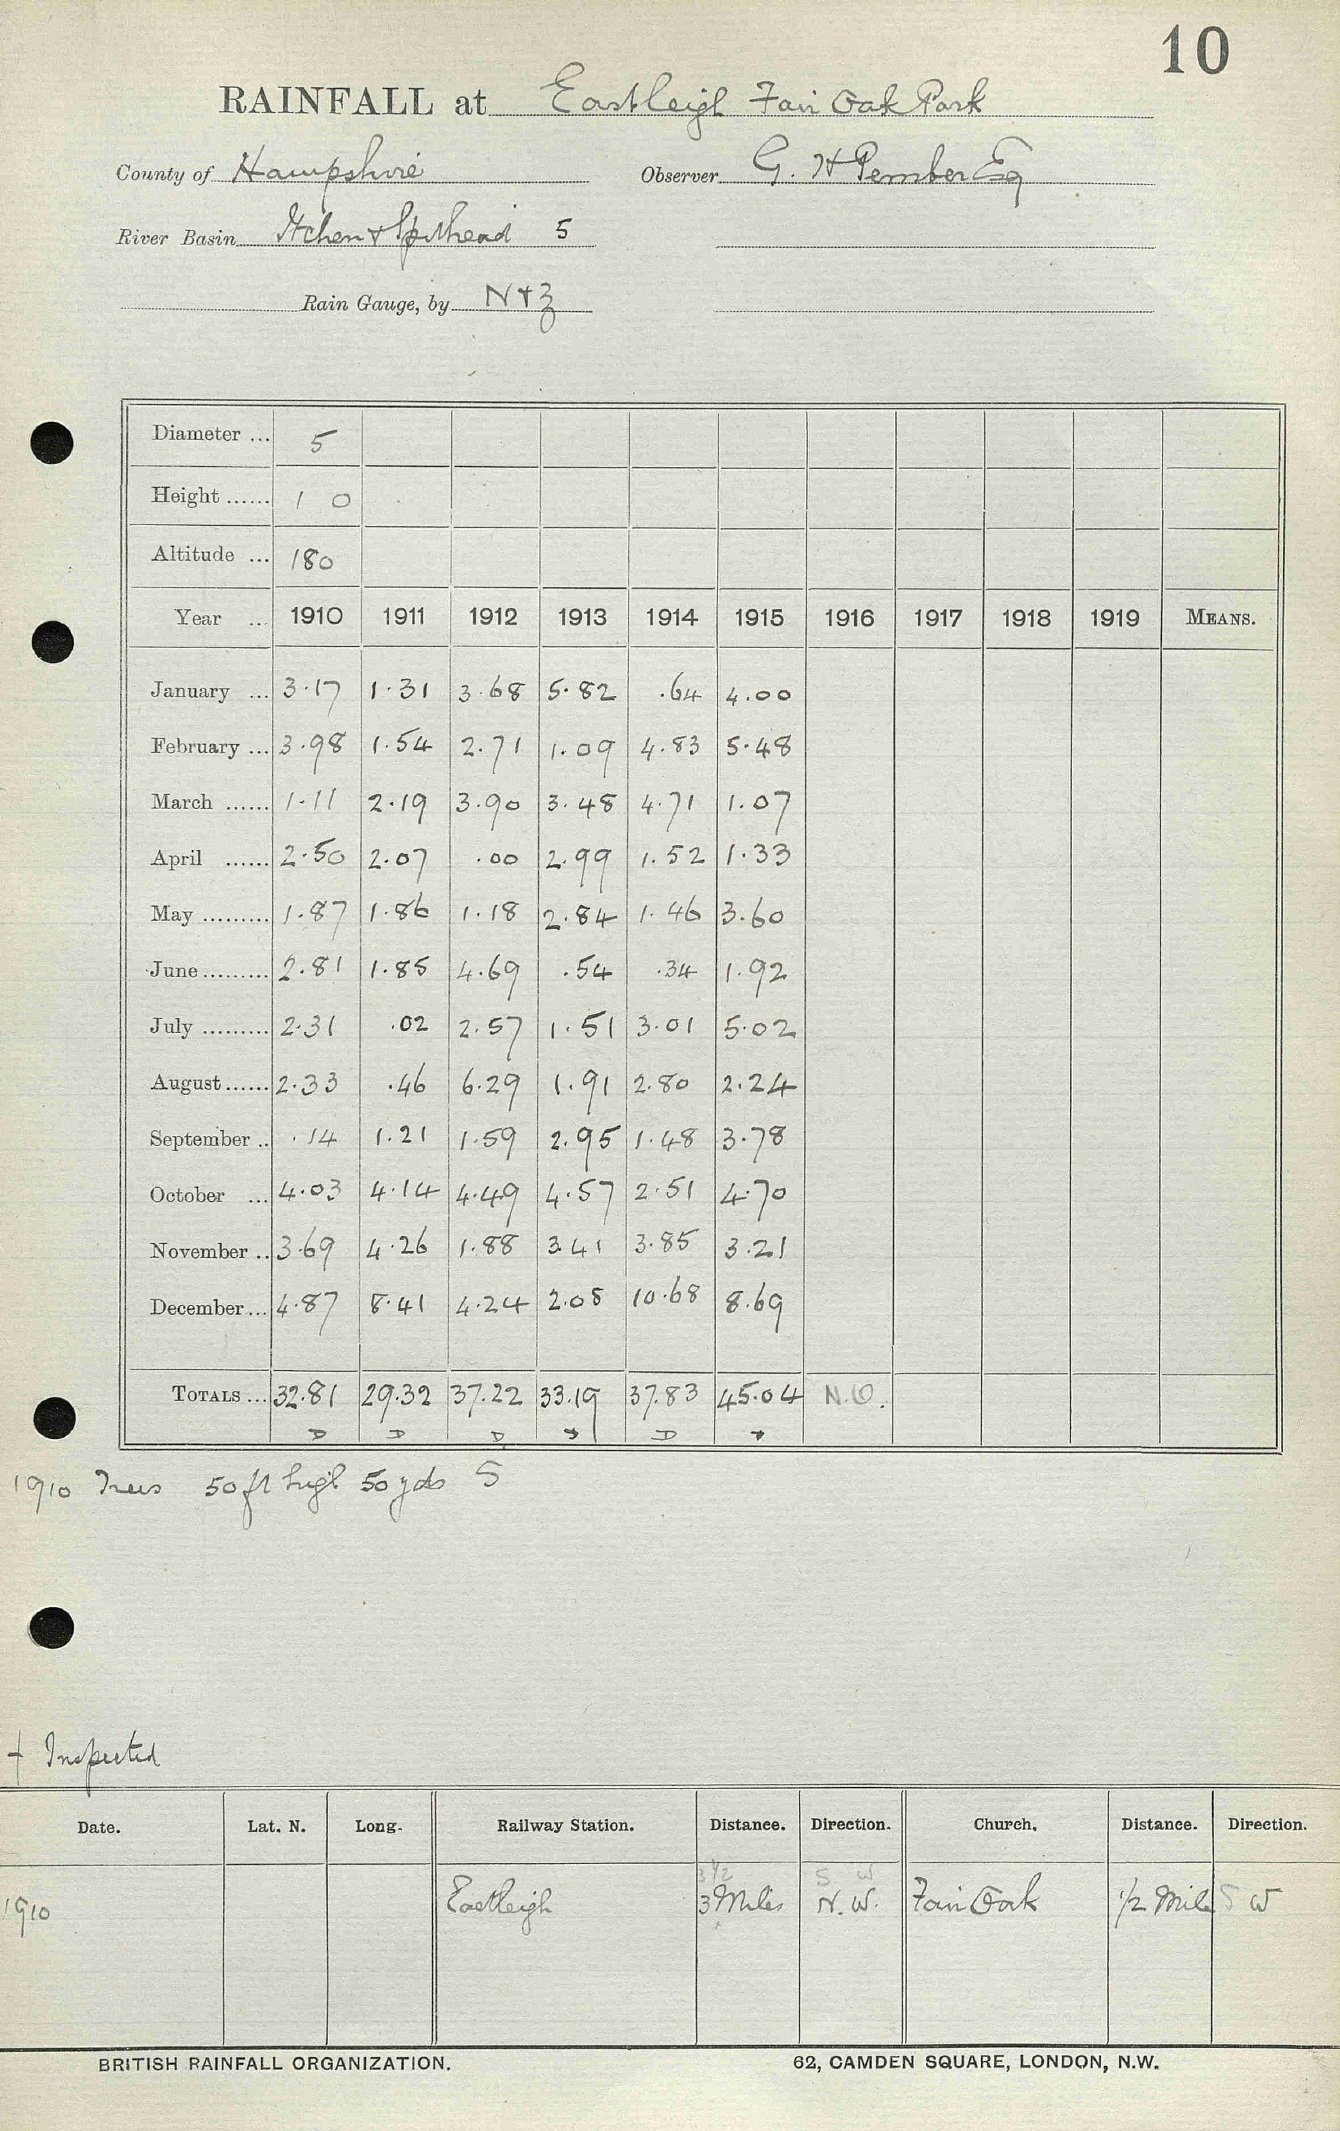 10
RAINFALL at Eastleigh Fair Oak Park
County of Hampshire Observer G. H Pember Esq
River Basin Itchen & Spithead 5
Rain Gauge, by N & Z
Diameter ... 5
Height ...... 1 0
Altitude ... 180
Year ... 1910 1911 1912 1913 1914 1915 1916 1917 1918 1919 MEANS.
January ... 3.17 1.31 3.68 5.82 .64 4.00
February ... 3.98 1.54 2.71 1.09 4.83 5.48
March ...... 1.11 2.19 3.90 3.48 4.71 1.07
April ...... 2.50 2.07 .00 2.99 1.52 1.33
May ......... 1.87 1.86 1.18 2.84 1.46 3.60
June ......... 2.81 1.85 4.69 .54 .34 1.92
July ......... 2.31 .02 2.57 1.51 3.01 5.02
August ...... 2.33 .46 6.29 1.91 2.80 2.24
September .. .14 1.21 1.59 2.95 1.48 3.78
October ... 4.03 4.14 4.49 4.57 2.51 4.70
November .. 3.69 4.26 1.88 3.41 3.85 3.21
December ... 4.87 8.41 4.24 2.08 10.68 8.69
TOTALS ... 32.81 29.32 37.22 33.19 37.83 45.04 N.O.
D D D D
1910 Trees 50 ft high 50 yds S
† Inspected
Date. Lat. N. Long. Railway Station. Distance. Direction. Church. Distance. Direction.
3 1/2 S W
1910 Eastleigh 3 Miles N.W. Fair Oak 1/2 Mile S W
BRITISH RAINFALL ORGANIZATION. 62, CAMDEN SQUARE, LONDON, N.W.